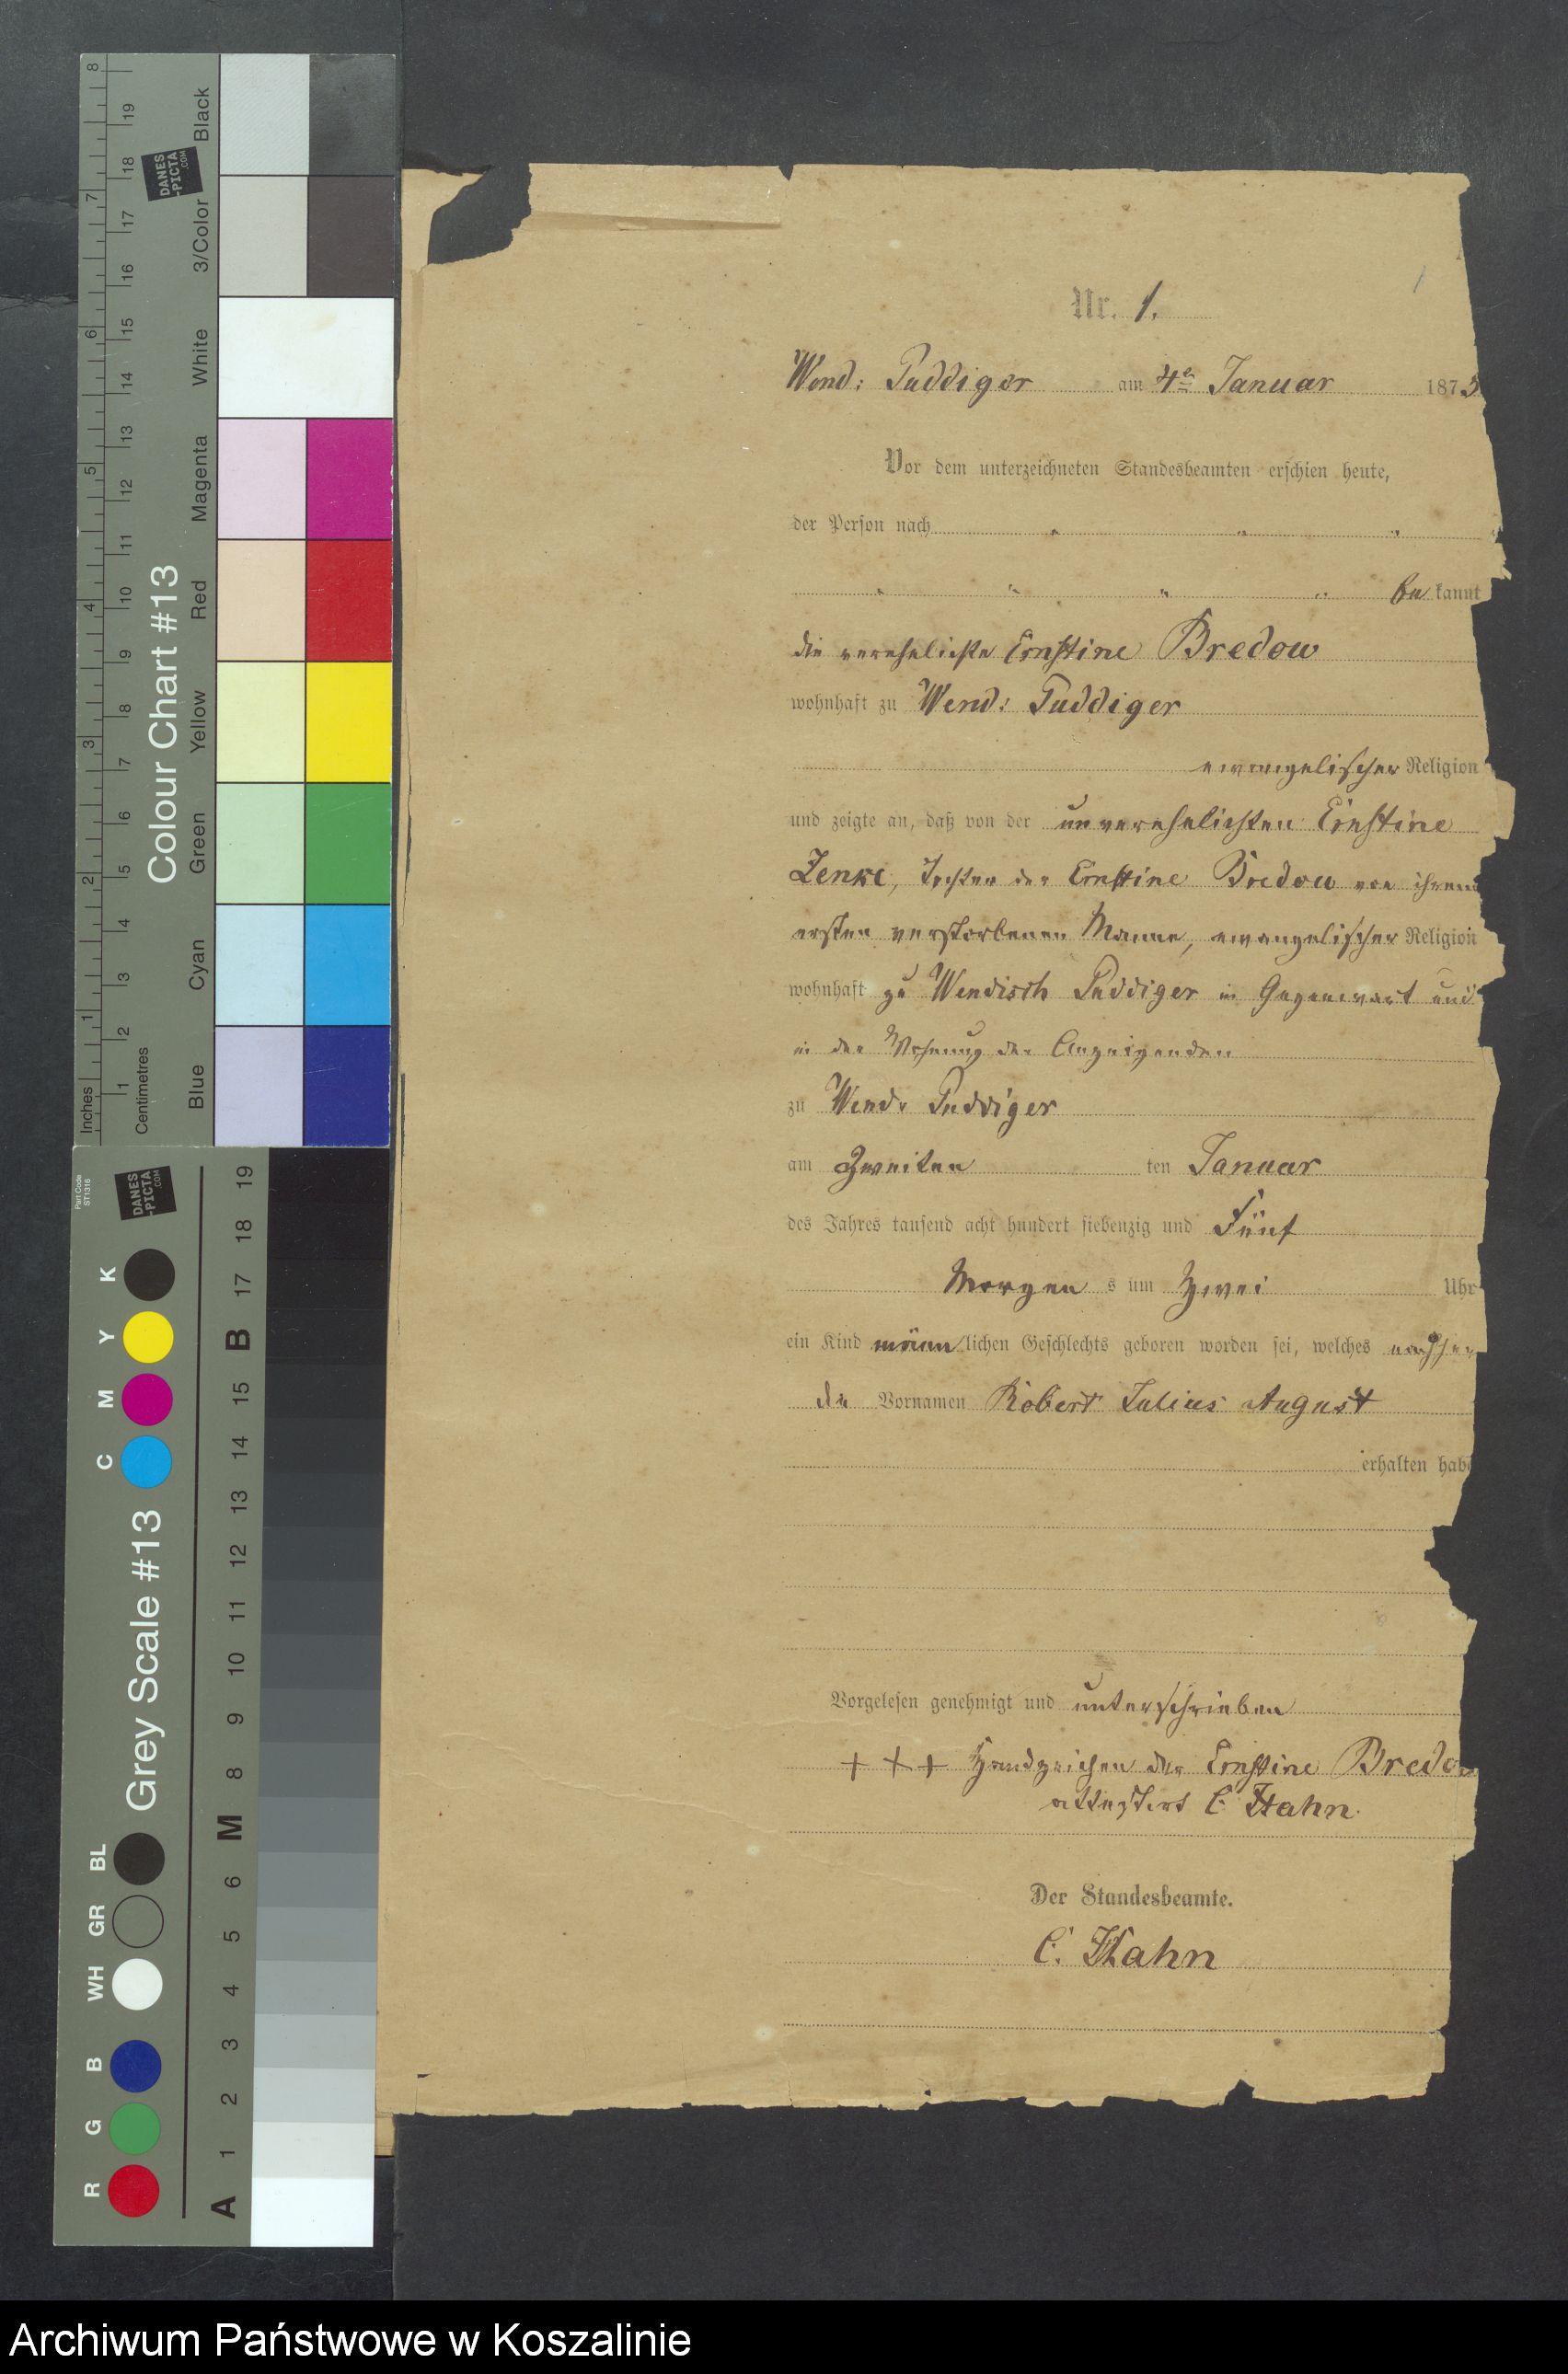 Nr. 1.
Wend: Puddiger am 4t Januar 1875
Vor dem unterzeichneten Standesbeamten erschien heute,
der Person nach
be kannt
die verehelichte Ernstine Bredow
wohnhaft zu Wend: Puddiger
evangelischer Religion
und zeigte an, daß von der unverehelichten Ernstine
Zenke, Tochter der Ernstine Bredow von ihrem
ersten verstorbenen Manne, evangelischer Religion
wohnhaft zu Wendisch Puddiger in Gegenwart und
in der Wohnung der Anzeigenden
zu Wend: Puddiger
am Zweiten ten Januar
des Jahres tausend acht hundert siebenzig und Fünf
Morgen s um Zwei Uhr
ein Kind männ lichen Geschlechts geboren worden sei, welches
die Vornamen Robert Julius August
erhalten habe
Vorgelesen genehmigt und unterschrieben
+ + + Handzeichen der Ernstine Bredow
attestirt C. Hahn.
Der Standesbeamte.
C. Hahn
Inches
Centimetres
1 2 3 4 5 6 7 8
1 2 3 4 5 6 7 8 9 10 11 12 13 14 15 16 17 18 19
Colour Chart #13
DANES
-PICTA
.COM
Blue
Cyan
Green
Yellow
Red
Magenta
White
3/Color
Black
Part Code
ST1316
DANES
-PICTA
.COM
Grey Scale #13
R G B WH GR BL C M Y K
A 1 2 3 4 5 6 M 8 9 10 11 12 13 14 15 B 17 18 19
Archiwum Państwowe w Koszalinie